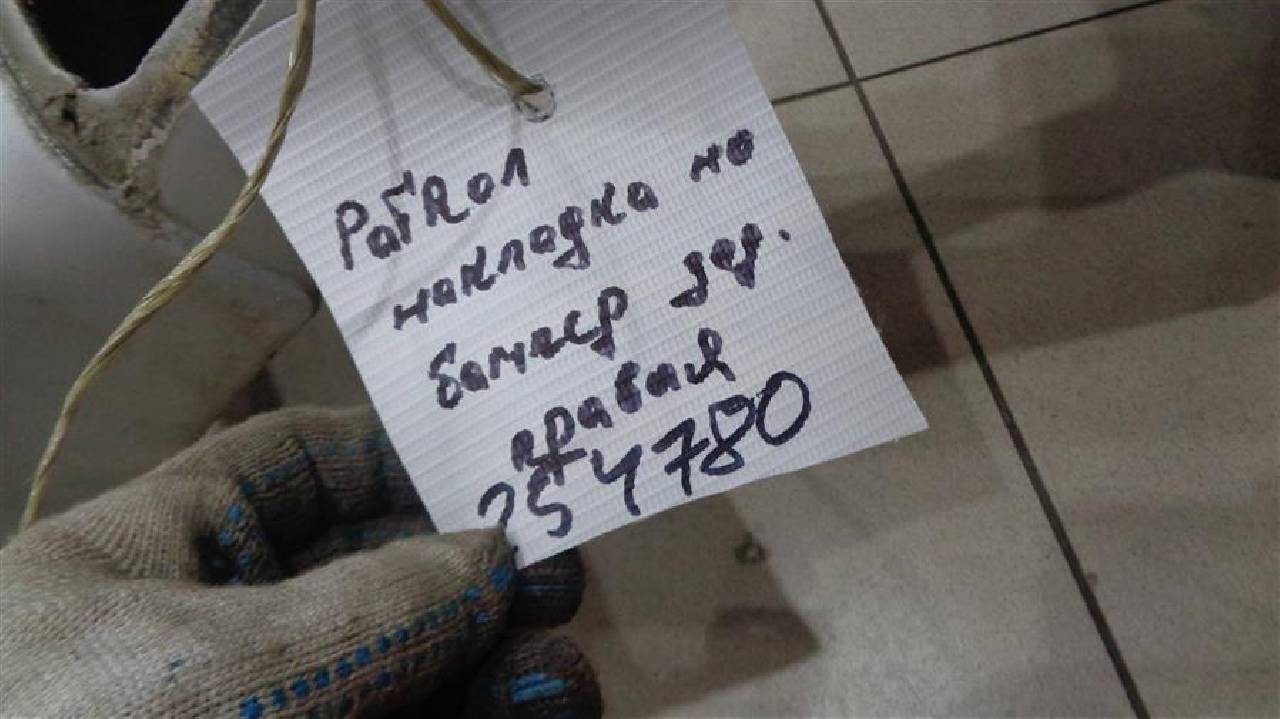 Патрол
накладка на
бампер зад.
правая
254780